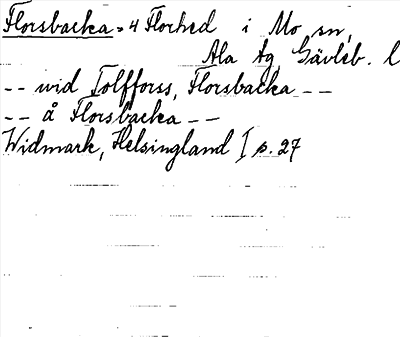 Florsbacka = 4 Florhed i Mo sn,
Ala tg Gävleb. l
-- wid Tolfforss, Florsbacka --
-- å Florsbacka --
Widmark, Helsingland I p. 27